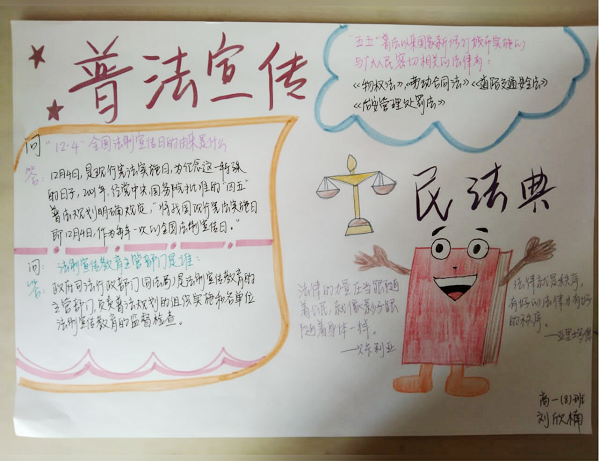 普法宣传
"五五"普法以来国家新修订或开实施的
与广大人民密切相关的法律有:
《物权法》《劳动合同法》《道路交通安全法》
《治安管理处罚法》
问"12·4"全国法制宣传日的由来是什么
答: 12月4日,是现行宪法实施日,为了纪念这一特殊
的日子,2001年,经党中央国务院批准的"四五"
普法规划明确规定,"将我国现行宪法实施日
即12月4日,作为每年一次的全国法制宣传日。"
问: 法制宣传教育主管部门是谁:
答: 政府司法行政部门(司法局)是法制宣传教育的
主管部门,负责普法规划的组织实施和各单位
法制宣传教育的监督检查。
民法典
法律的力量应当跟随着
公民,就像影子跟
随着身体一样。
法律就是秩序,
有好的法律才有好
的秩序。
——亚里士多德
高一(8)班
刘欣楠